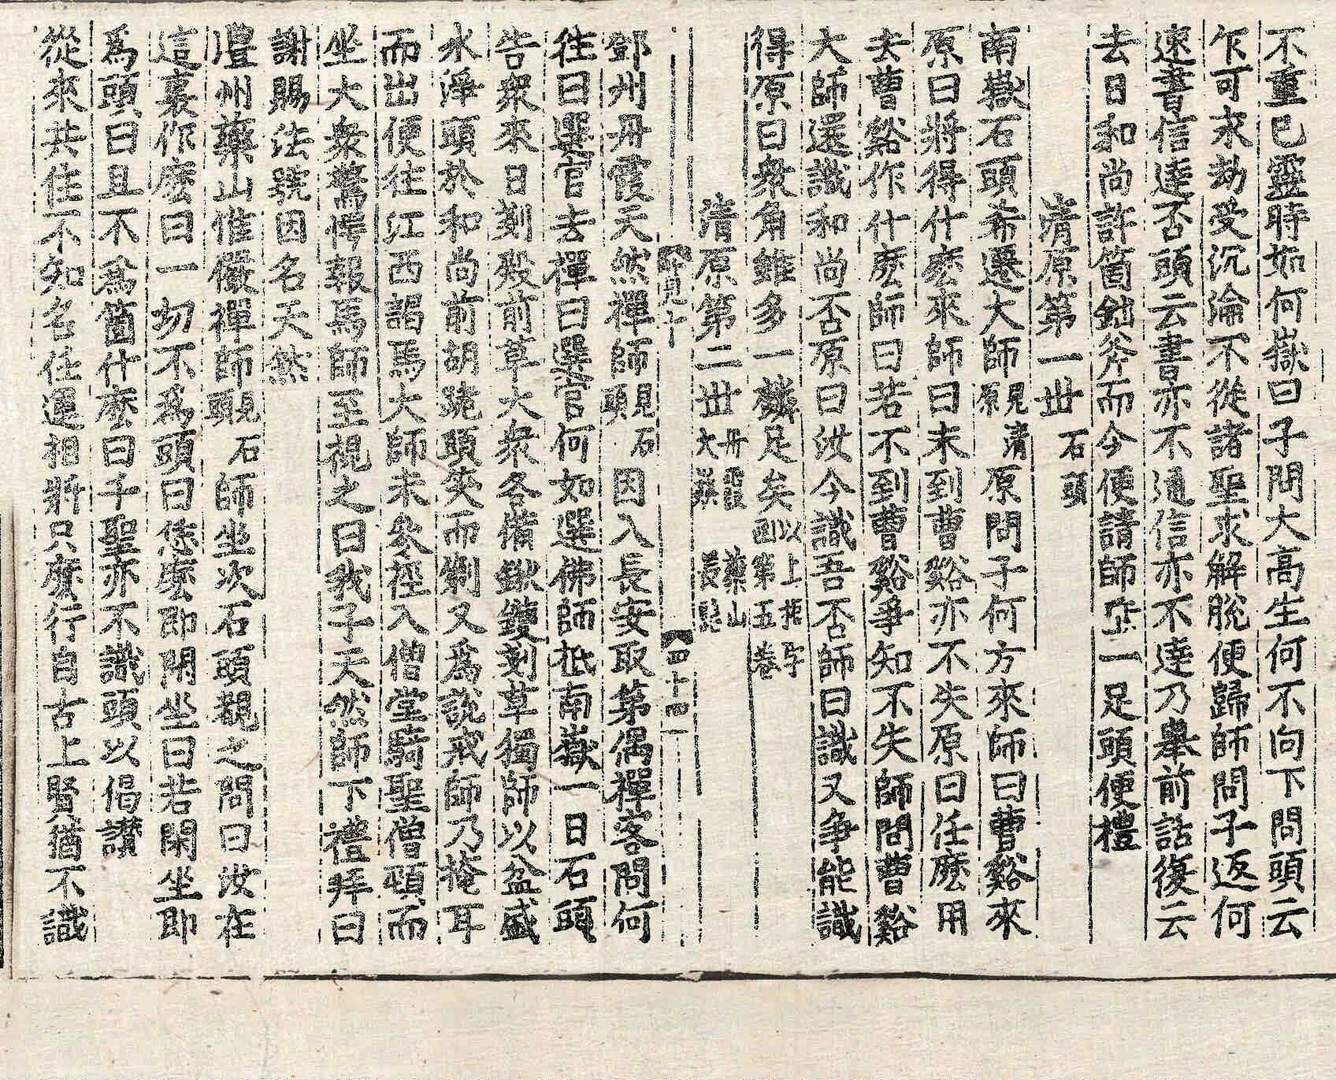 不重已靈時如何嶽曰子問大高生何不向下問頭云
乍可求劫受沉淪不從諸聖求解脫便歸師問子返何
速書信達否頭云書亦不通信亦不達乃舉前話復云
去日和尚許箇鈯斧而今便請師埀一足頭便禮
清原第一世 石頭
南嶽石頭希遷大師見清原 原問子何方來師曰曹谿來
原曰將得什麽來師曰未到曹谿亦不失原曰任麽用
去曹谿作什麽師曰若不到曹谿爭知不失師問曹谿
大師還識和尚否原曰汝今識吾否師曰識又爭能識
得原曰衆角雖多一麟足矣 以上拒字函第五卷
清原第二世 丹霞 藥山 大顛 長髭
四十四
鄧州丹霞天然禪師見石頭 因入長安取第偶禪客問何
往曰選官去禪曰選官何如選佛師抵南嶽一日石頭
告衆來日剗殿前草大衆各備鍬钁剗草獨師以盆盛
水淨頭於和尚前胡跪頭笑而剃又爲說戒師乃掩耳
而出便往江西謁馬大師未叅徑入僧堂騎聖僧頭而
坐大衆驚愕報馬師至視之曰我子天然師下禮拜曰
謝賜法號因名天然
澧州藥山惟儼禪師見石頭 師坐次石頭覩之問曰汝在
這裏作麽曰一切不爲頭曰恁麽即閑坐曰若閑坐即
爲頭曰且不爲箇什麽曰千聖亦不識頭以偈讃
從來共住不知名任運相將只麽行自古上賢猶不識